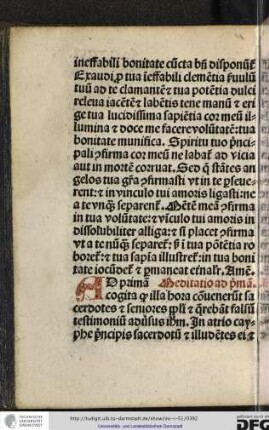 ineffabili bonitate cūcta bn̄ disponūt
Exaudi ꝓ tua īeffabili clemētia fꝛuulū
tuū ad te clamantē ⁊ tua potētia dulci
releua iacētē ⁊ labētis tene manū ⁊ eri
ge tua lucidissima sapiētia cor meū il⸗
lumina ⁊ doce me facere volūtatē: tua
bonitate munifica. Spiritu tuo pn̄ci⸗
pali ꝯfirma cor meū ne labat̄ ad vicia
aut in mortē corruat. Sed q̄ stātes an
gelos tua gr̄a ꝯfirmasti vt in te pseue⸗
rent: ⁊ in vinculo tui amoris ligasti: ne
a te vnq̄ separent̄. Mētē meā ꝯfirma
in tua volūtate: ⁊ vīculo tui amoris in
dissolubiliter alliga: ⁊ si placet ꝯfirma
vt a te nūq̄ separet̄: sꝫ ī tua potētia ro
boret̄: ⁊ tua sapīa illustret̄: in tua boni
tate iocūdet̄ ⁊ ꝑmaneat et̄nalr̄. Amē.
AD primā Meditatio ad pͥmā.
cogita ꝙ illa hora cōuenerūt sa
cerdotes ⁊ seniores ppl̄i ⁊ q̄rebāt falsū
testimoniū aduſus ihm̄. In atrio cay⸗
phe pn̄cipis sacerdotū ⁊ illudētes ei ⁊
http://tudigit.ulb.tu-darmstadt.de/show/inc-i-52/0392
Universitäts- und Landesbibliothek Darmstadt
TECHNISCHE
UNIVERSITÄT
DARMSTADT
DFG